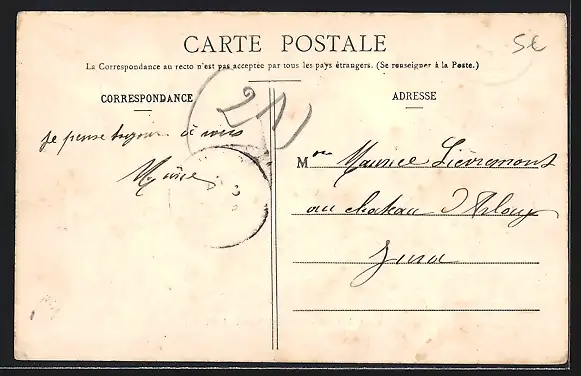 CARTE POSTALE
La Correspondance au recto n'est pas acceptée par tous les pays étrangers. (Se renseigner à la Poste.)
CORRESPONDANCE
ADRESSE
21
je pense toujours à vous
Mme Maurice Lièvremont
au chateau d'Arlay
Jura